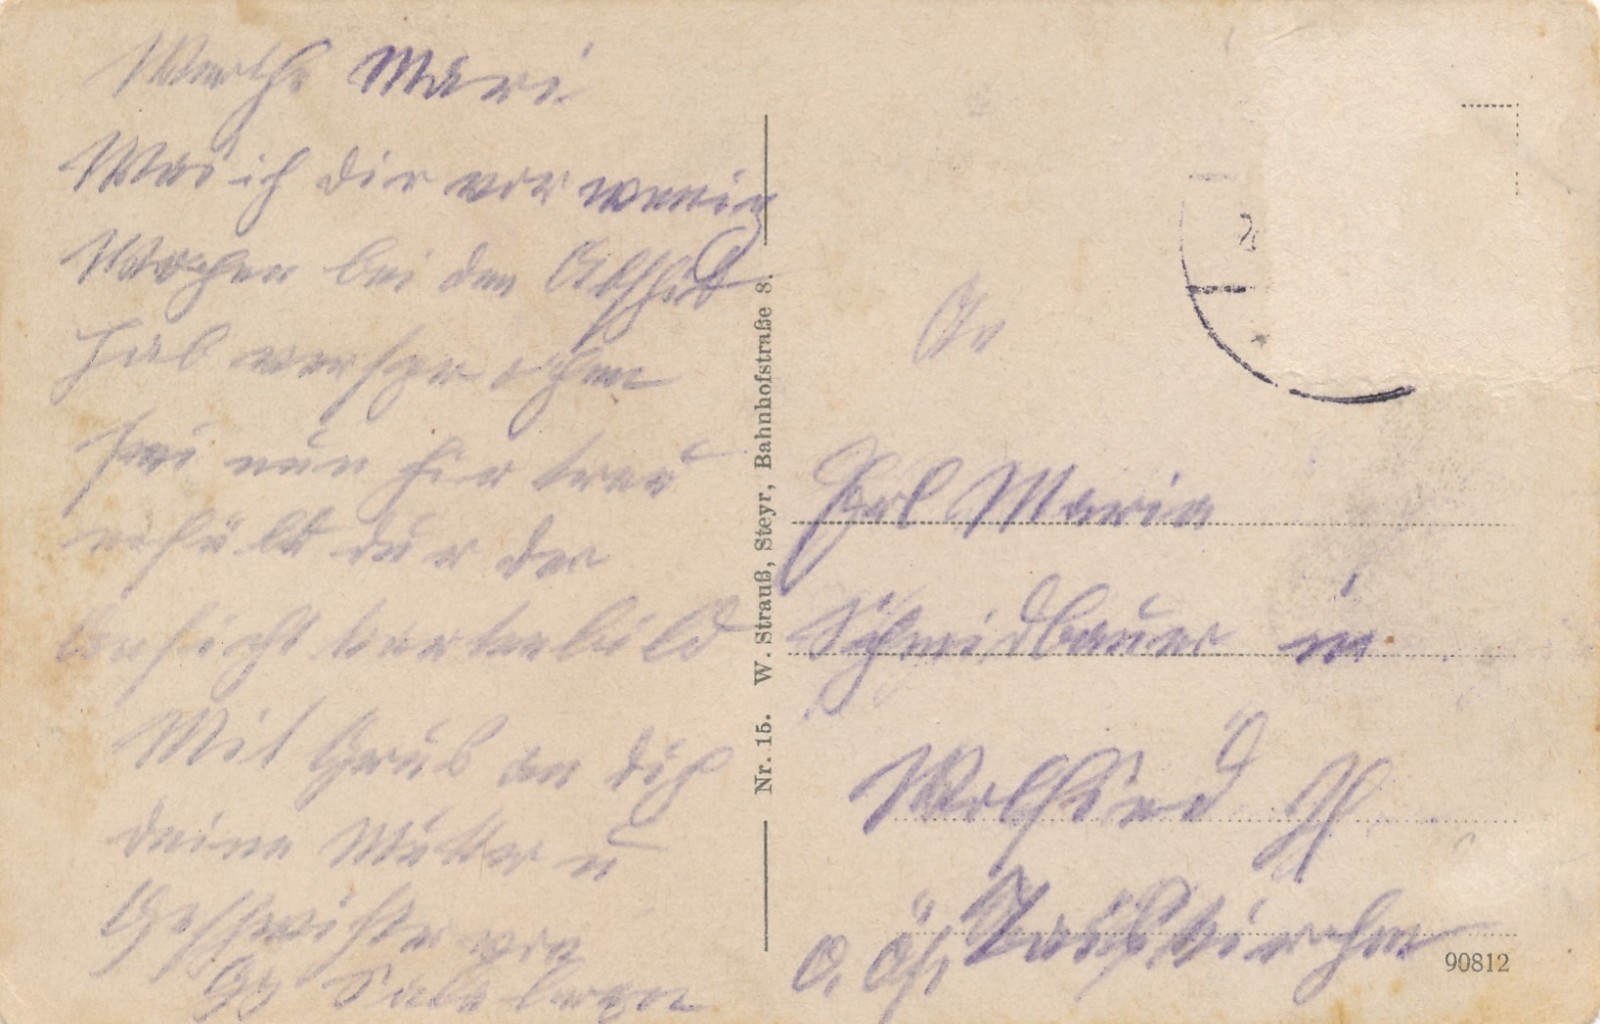 Werthe Mari
Was ich dir vor wenig
Wochen bei den Abschid
hab versprochen
sei nun hir treu
erfüllt dur der
Ansicht kartebild
Mit Gruß an dich
deine Mutter u
Geschwister von
Nr. 15. W. Strauß, Steyr, Bahnhofstraße 8.
An
Frl Maria
Schmidbauer in
O. Öst. Taufkirchen
90812